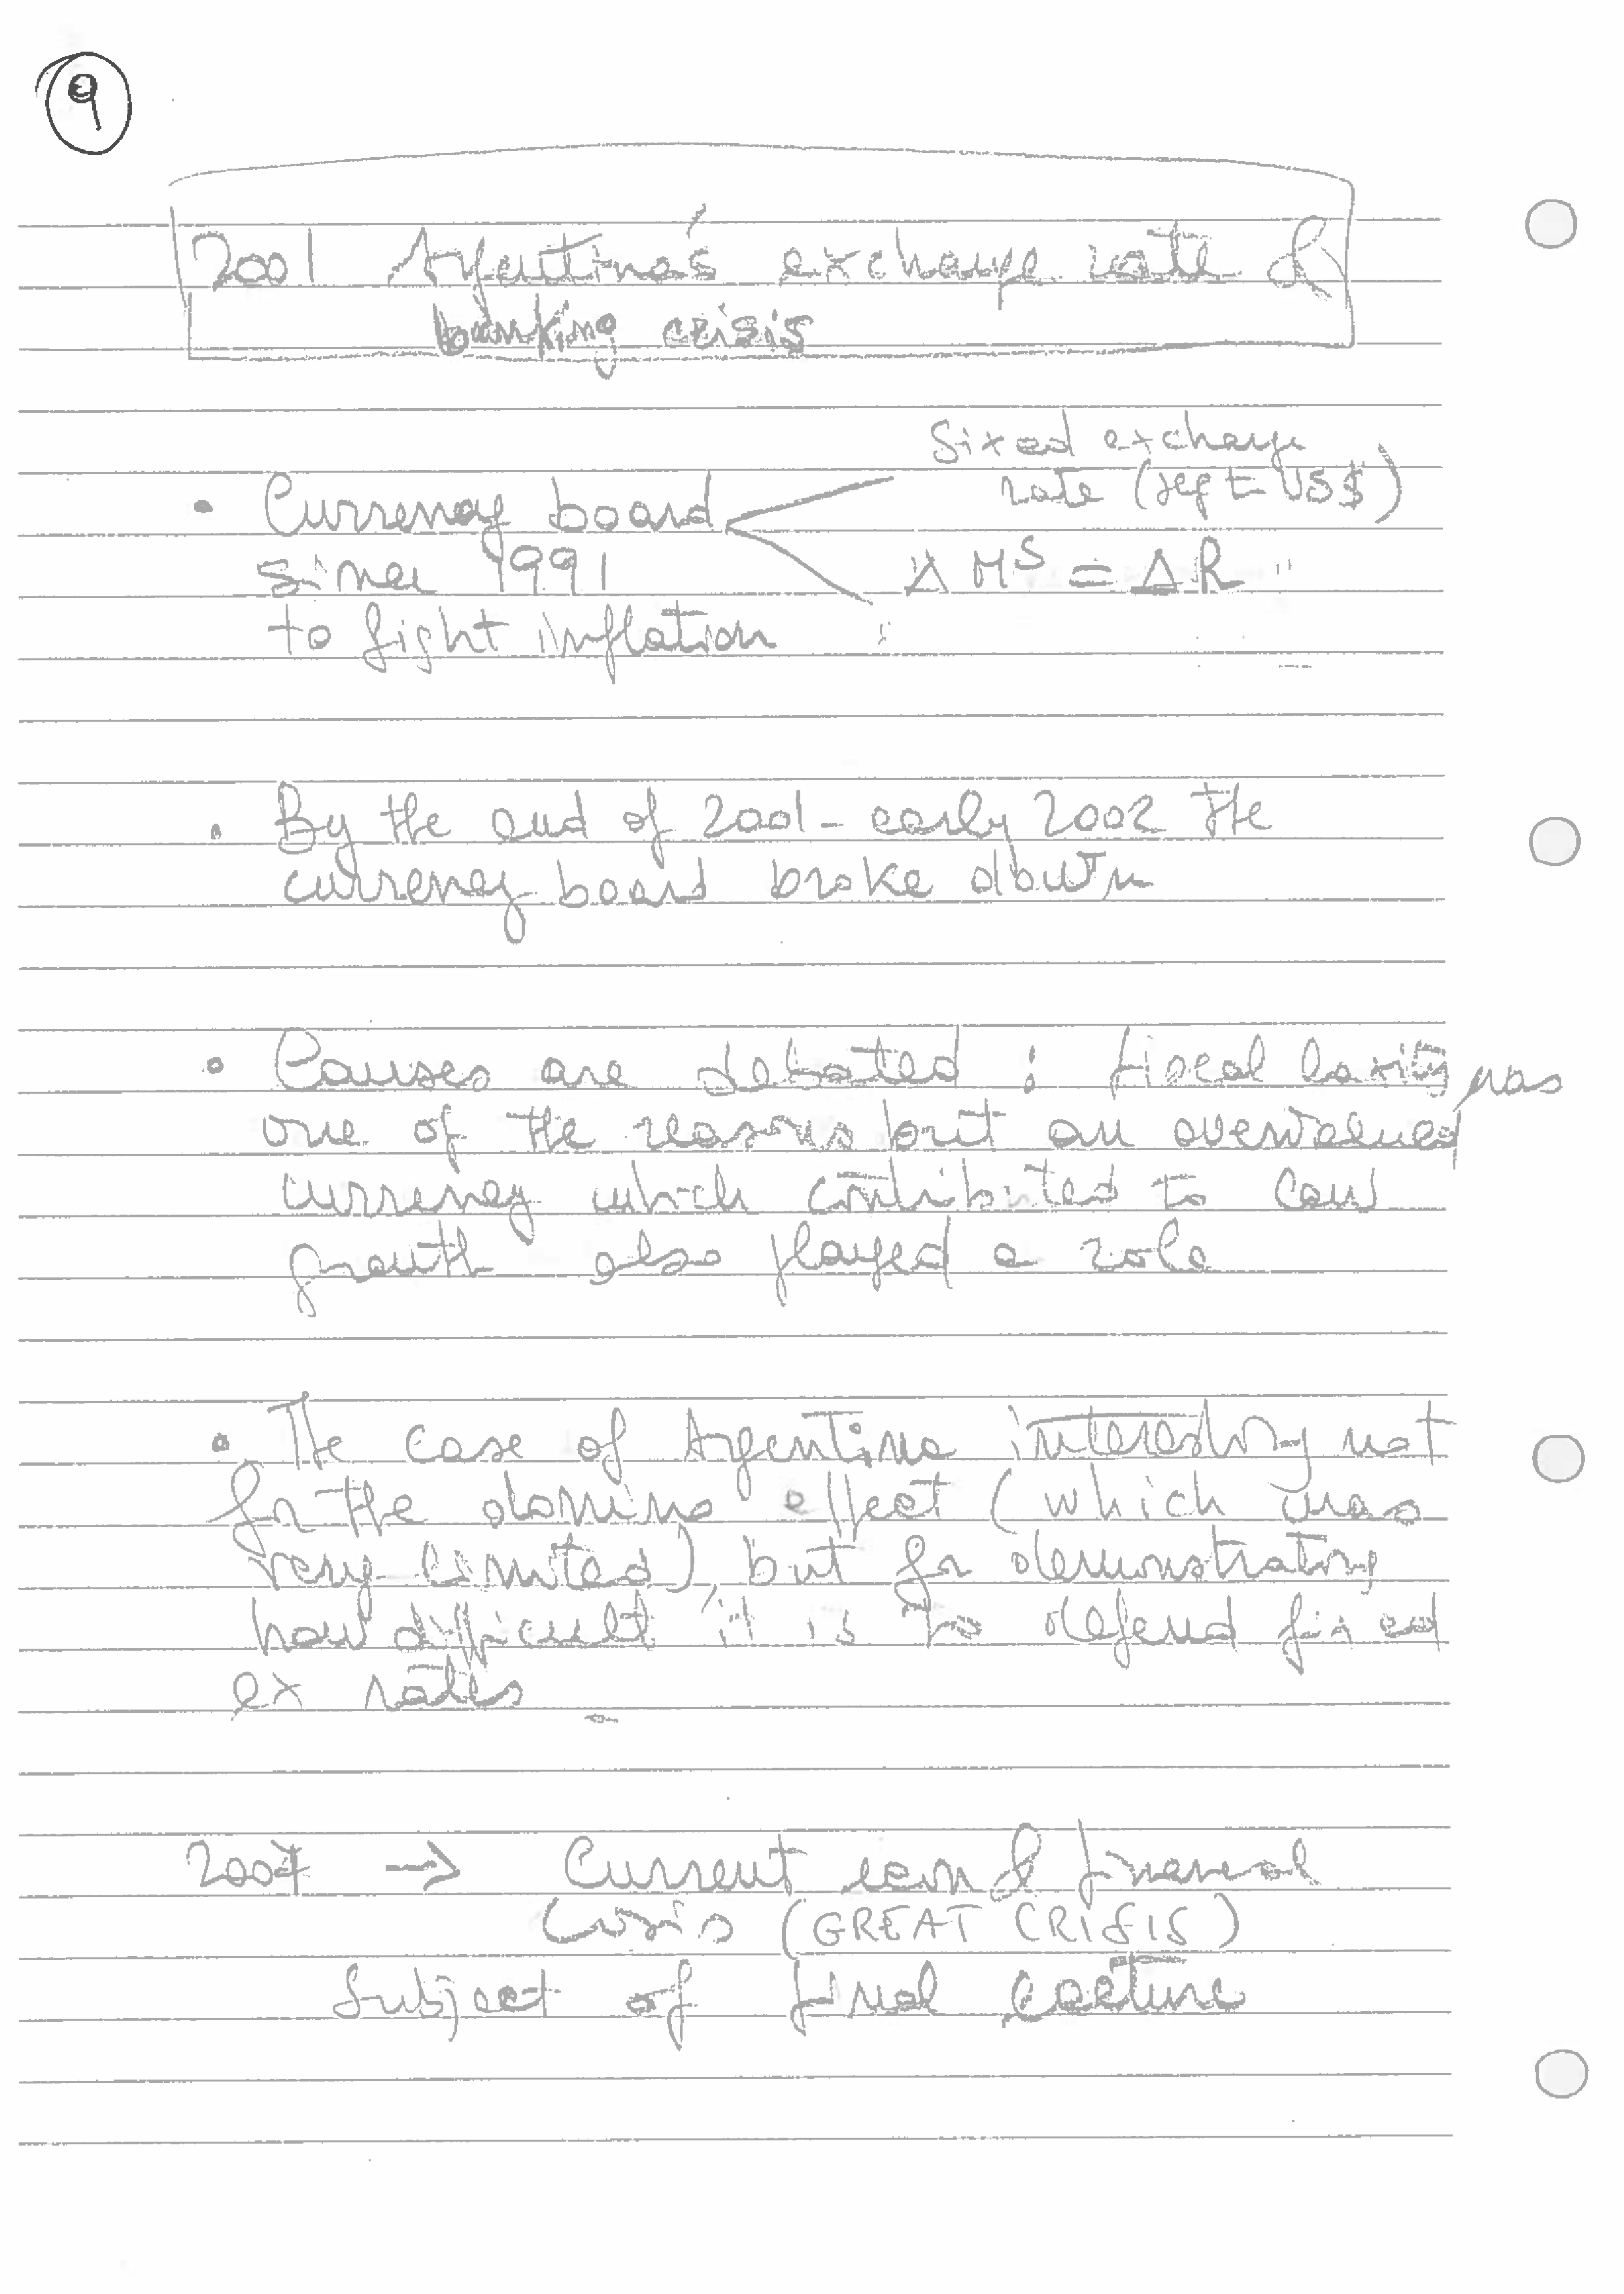 9
2001 Argentina's exchange rate &
banking crisis
fixed exchange
rate (
US$)
• Currency board
since 1991
ΔM^S = ΔR
to fight inflation
• By the end of 2001 - early 2002 the
currency board broke down
• Causes are debated : fiscal laxity was
one of the reasons but an overvalued
currency which contributed to low
growth also played a role
• The case of Argentina interesting not
for the domino effect (which was
very limited), but for demonstrating
how difficult it is to defend fixed
ex rates
2007 → Current econ & financial
Crisis (GREAT CRISIS)
Subject of final lecture